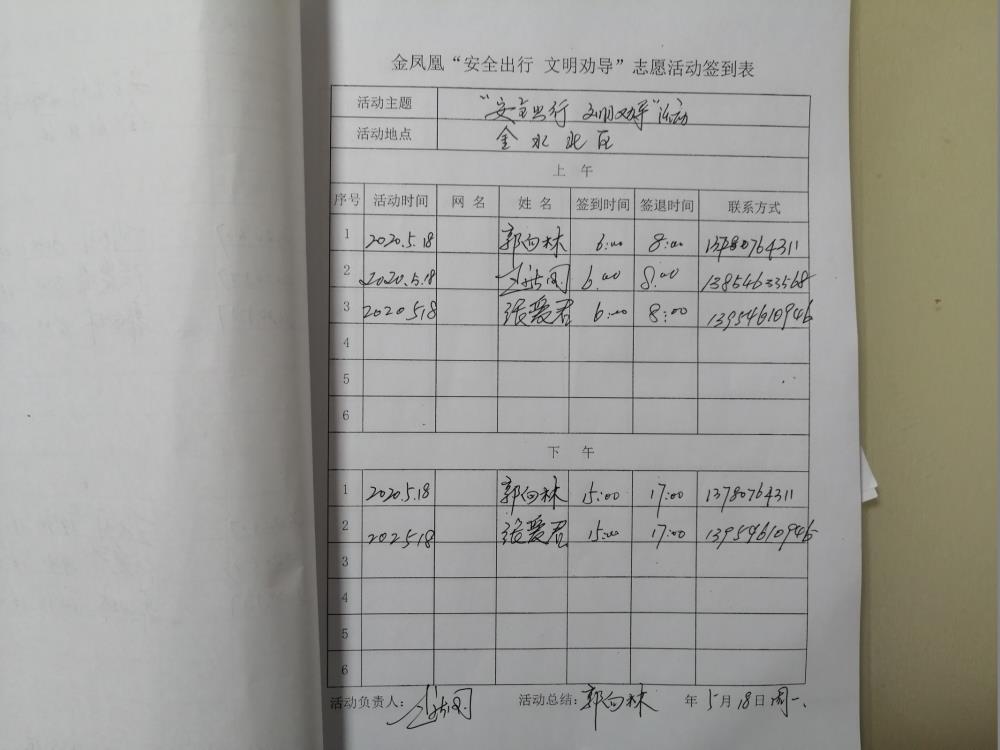 金凤凰“安全出行 文明劝导”志愿活动签到表
活动主题 “安全出行 文明劝导”活动
活动地点 金水北区
上 午
序号 活动时间 网名 姓名 签到时间 签退时间 联系方式
1 2020.5.18 郭向林 6:00 8:00 13780764311
2 2020.5.18 6.00 8.00 13854633568
3 2020518 张爱君 6:00 8:00 13954610946
4
5
6
下 午
1 2020.5.18 郭向林 15:00 17:00 13780764311
2 202518 张爱君 15:00 17:00 13954610946
3
4
5
6
活动负责人: 活动总结: 郭向林 年 5月18日 周一.